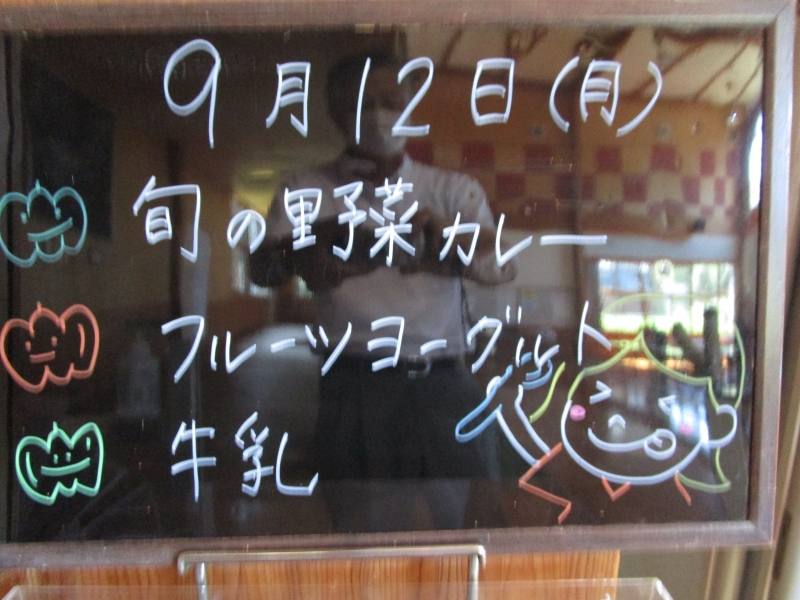 9月12日(月)
旬の野菜カレー
フルーツヨーグルト
牛乳